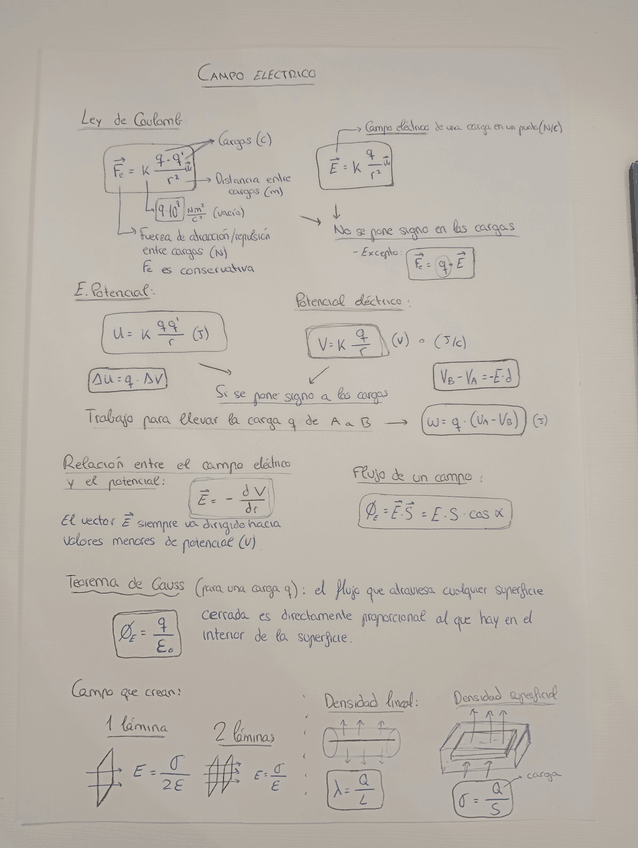 CAMPO ELECTRICO
Ley de Coulomb
F⃗e = K q·q' / r² u⃗
Cargas (C)
Distancia entre
cargas (m)
9·10⁹ Nm²/C² (vacío)
Fuerza de atracción/repulsión
entre cargas (N)
Fe es conservativa
Campo eléctrico de una carga en un punto (N/C)
E⃗ = K q / r² u⃗
No se pone signo en las cargas
- Excepto: F⃗e = q · E⃗
E. Potencial:
U = K qq' / r (J)
ΔU = q · ΔV
Potencial eléctrico:
V = K q / r (V) o (J/C)
VB - VA = -E·d
Si se pone signo a las cargas
Trabajo para llevar la carga q de A a B → W = q · (VA - VB) (J)
Relación entre el campo eléctrico
y el potencial: E⃗ = - dV / dr
El vector E⃗ siempre va dirigido hacia
valores menores de potencial (V)
Flujo de un campo:
ØE = E⃗·S⃗ = E · S · cos α
Teorema de Gauss (para una carga q): el flujo que atraviesa cualquier superficie
cerrada es directamente proporcional al que hay en el
interior de la superficie.
ØE = q / ε₀
Campo que crean:
1 lámina
E = σ / 2ε
2 láminas
E = σ / ε
Densidad lineal:
λ = Q / L
Densidad superficial
σ = Q / S
carga